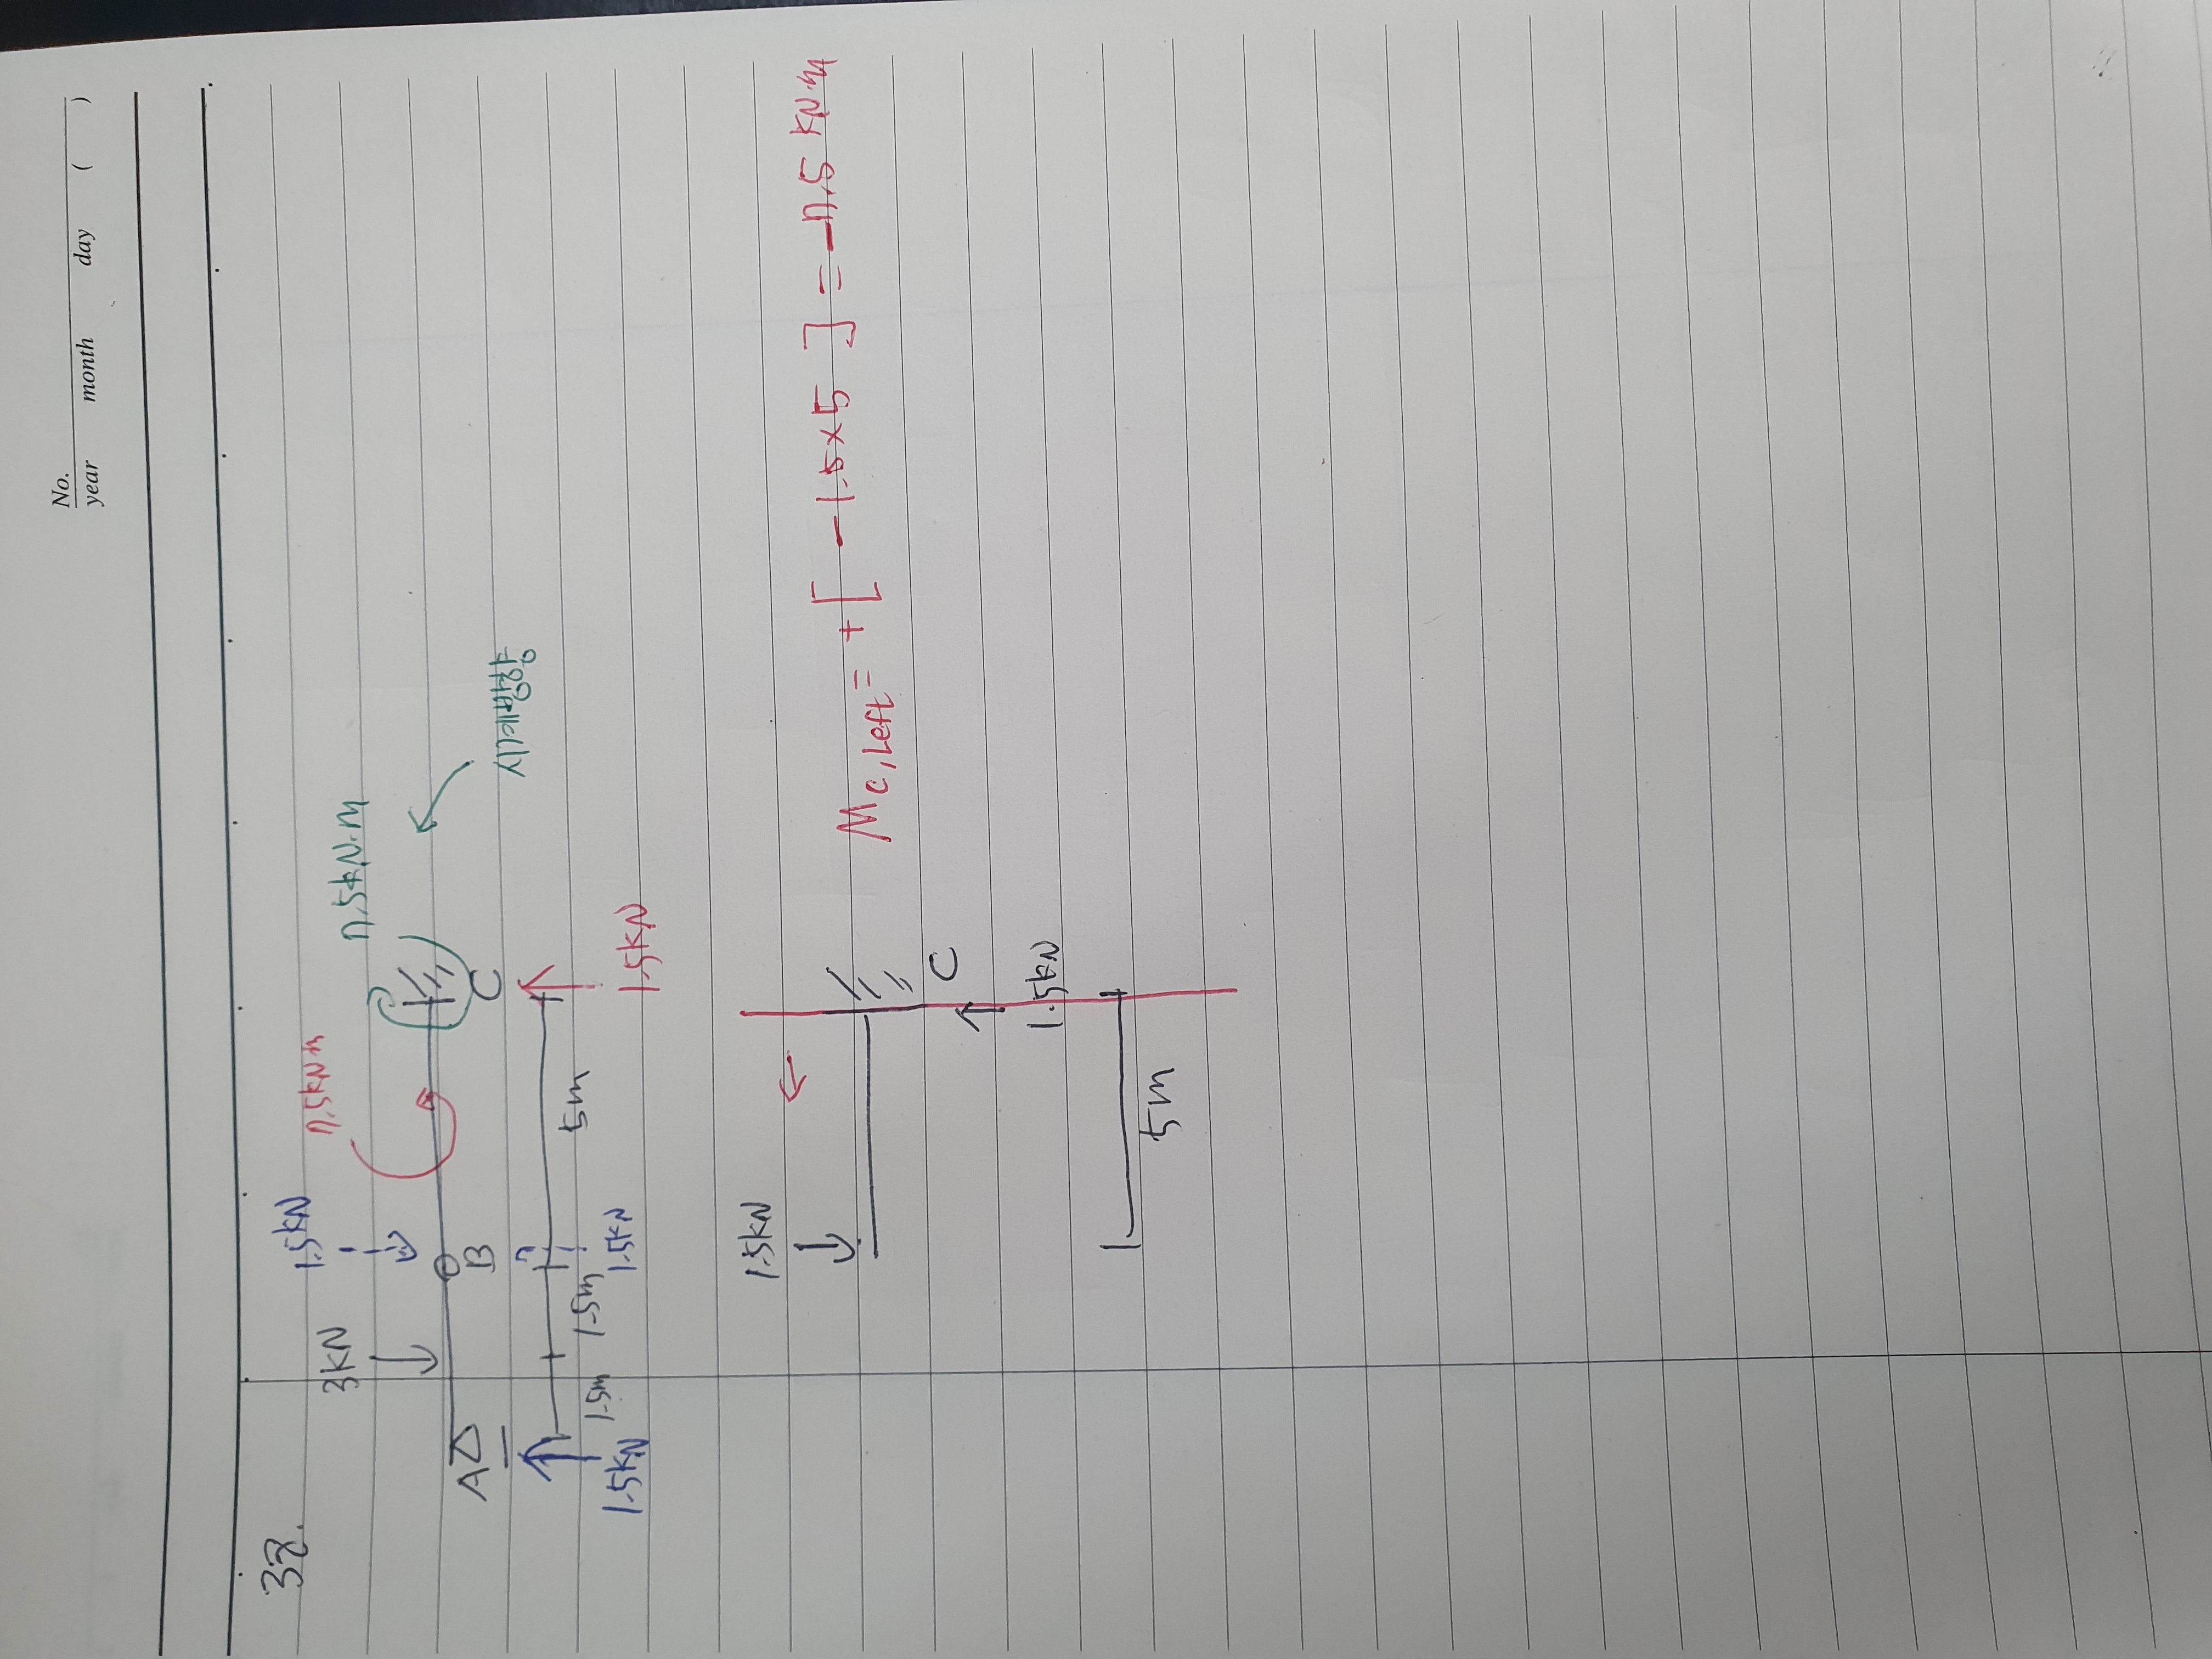 No.
year month day ( )
38.
1.5kN
7.5kN·m
7.5kN·m
3kN
A
B
C
시계방향
1.5m 1.5m 5m
1.5kN
1.5kN
1.5kN
1.5kN
M_C,Left = + [ -1.5×5 ] = -7.5 kN·m
C
1.5kN
5m